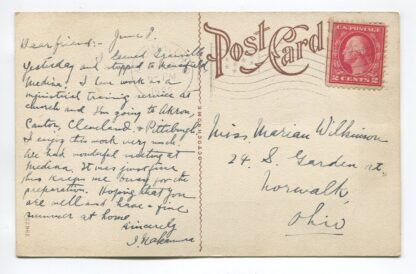 June 8.
Dear friend:-
Leaved Granville
Yesterday and stopped to Mansfield
Medina. I have work in a
ministrial training service at
church and I'm going to Akron,
Canton, Cleveland & Pittsburgh
I enjoy this work very much.
We had wonderful meeting at
Medina. It was just fine
this keeps me busy for the
preparation. Hoping that you
are well and have a fine
summer at home.
Sincerely
Post Card
U.S. POSTAGE
2 CENTS 2
Miss Marian Wilkinson
24 S. Garden st.
Norwalk,
Ohio
OCTOCHROME